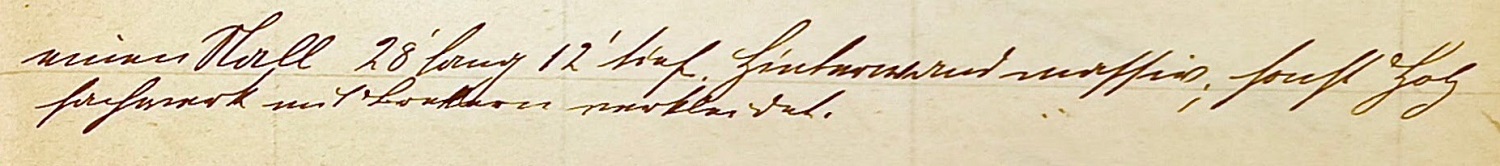 einen Stall 28' lang 12' tief. Hinterwand massiv, sonst Holz
fachwerk mit Brettern verkleidet.